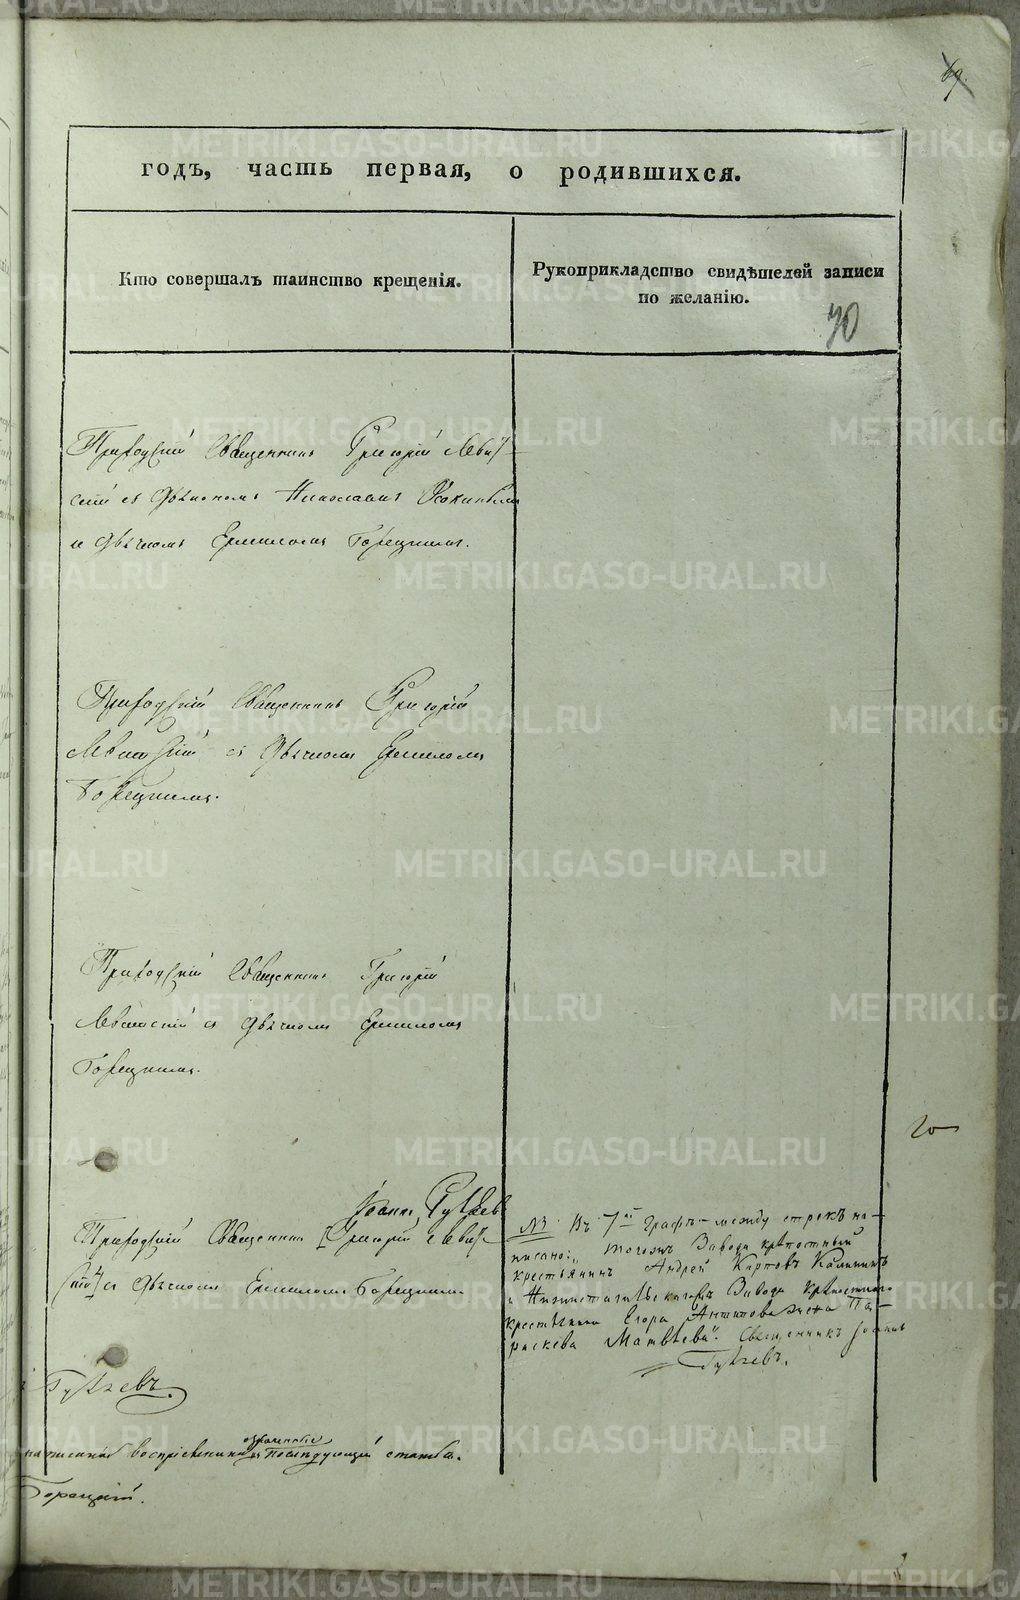 69.
годъ, часть первая, о родившихся.
Кто совершалъ таинство крещенія.
Рукоприкладство свидѣтелей записи
по желанію.
70
Приходскій Священникъ Григорій Леви-
скій съ Дьякономъ Николаемъ
и Дьячкомъ Ермиломъ Горецкимъ.
Приходскій Священникъ Григорій
съ Дьячкомъ Ермиломъ
Горецкимъ.
Приходскій Священникъ Григорій
съ Дьячкомъ Ермиломъ
Горецкимъ.
Іоаннъ
Приходскій Священникъ Григорій Леви-
скій съ Дьячкомъ Ермиломъ Горецкимъ
№ Въ 7й графѣ между строкъ на-
писано: „тогожъ Завода крѣпостный
крестьянинъ Андрей Карповъ Калининъ
и Нижнетагильскагожъ Завода крѣпостнаго
крестьянина Егора Антипова жена Па-
раскева Матвѣева". Священникъ Іоаннъ
написанная воспріемники означенные въ послѣдующей статьѣ.
Горецкій.
METRIKI.GASO-URAL.RU